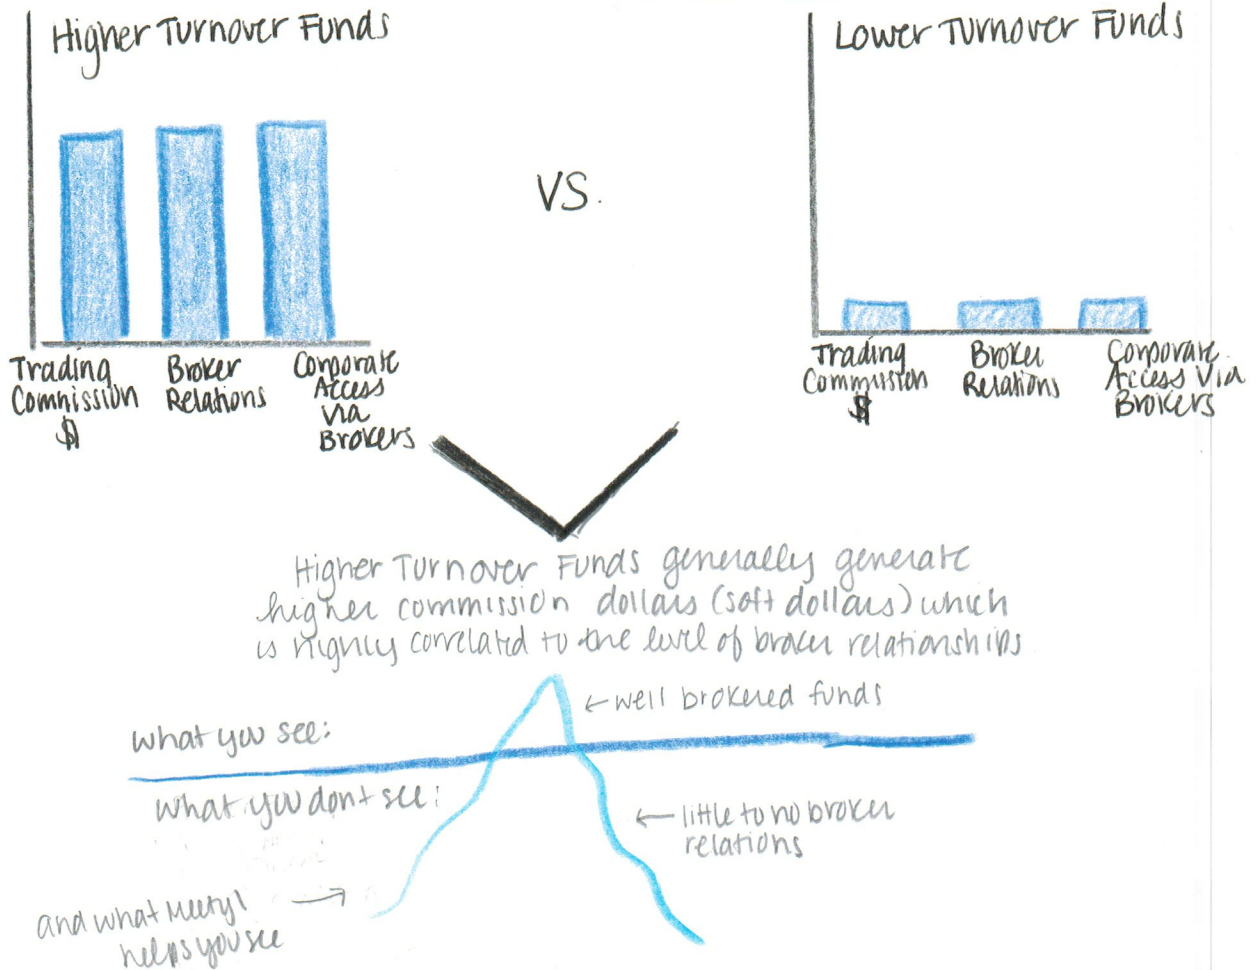 Higher Turnover Funds
Trading
Commission
$
Broker
Relations
Corporate
Access
via
Brokers
VS.
Lower Turnover Funds
Trading
Commission
$
Broker
Relations
Corporate
Access Via
Brokers
Higher Turnover Funds generally generate
higher commission dollars (soft dollars) which
is highly correlated to the level of broker relationships
what you see:
← well brokered funds
what you don't see:
← little to no broker
relations
and what Meetyl →
helps you see